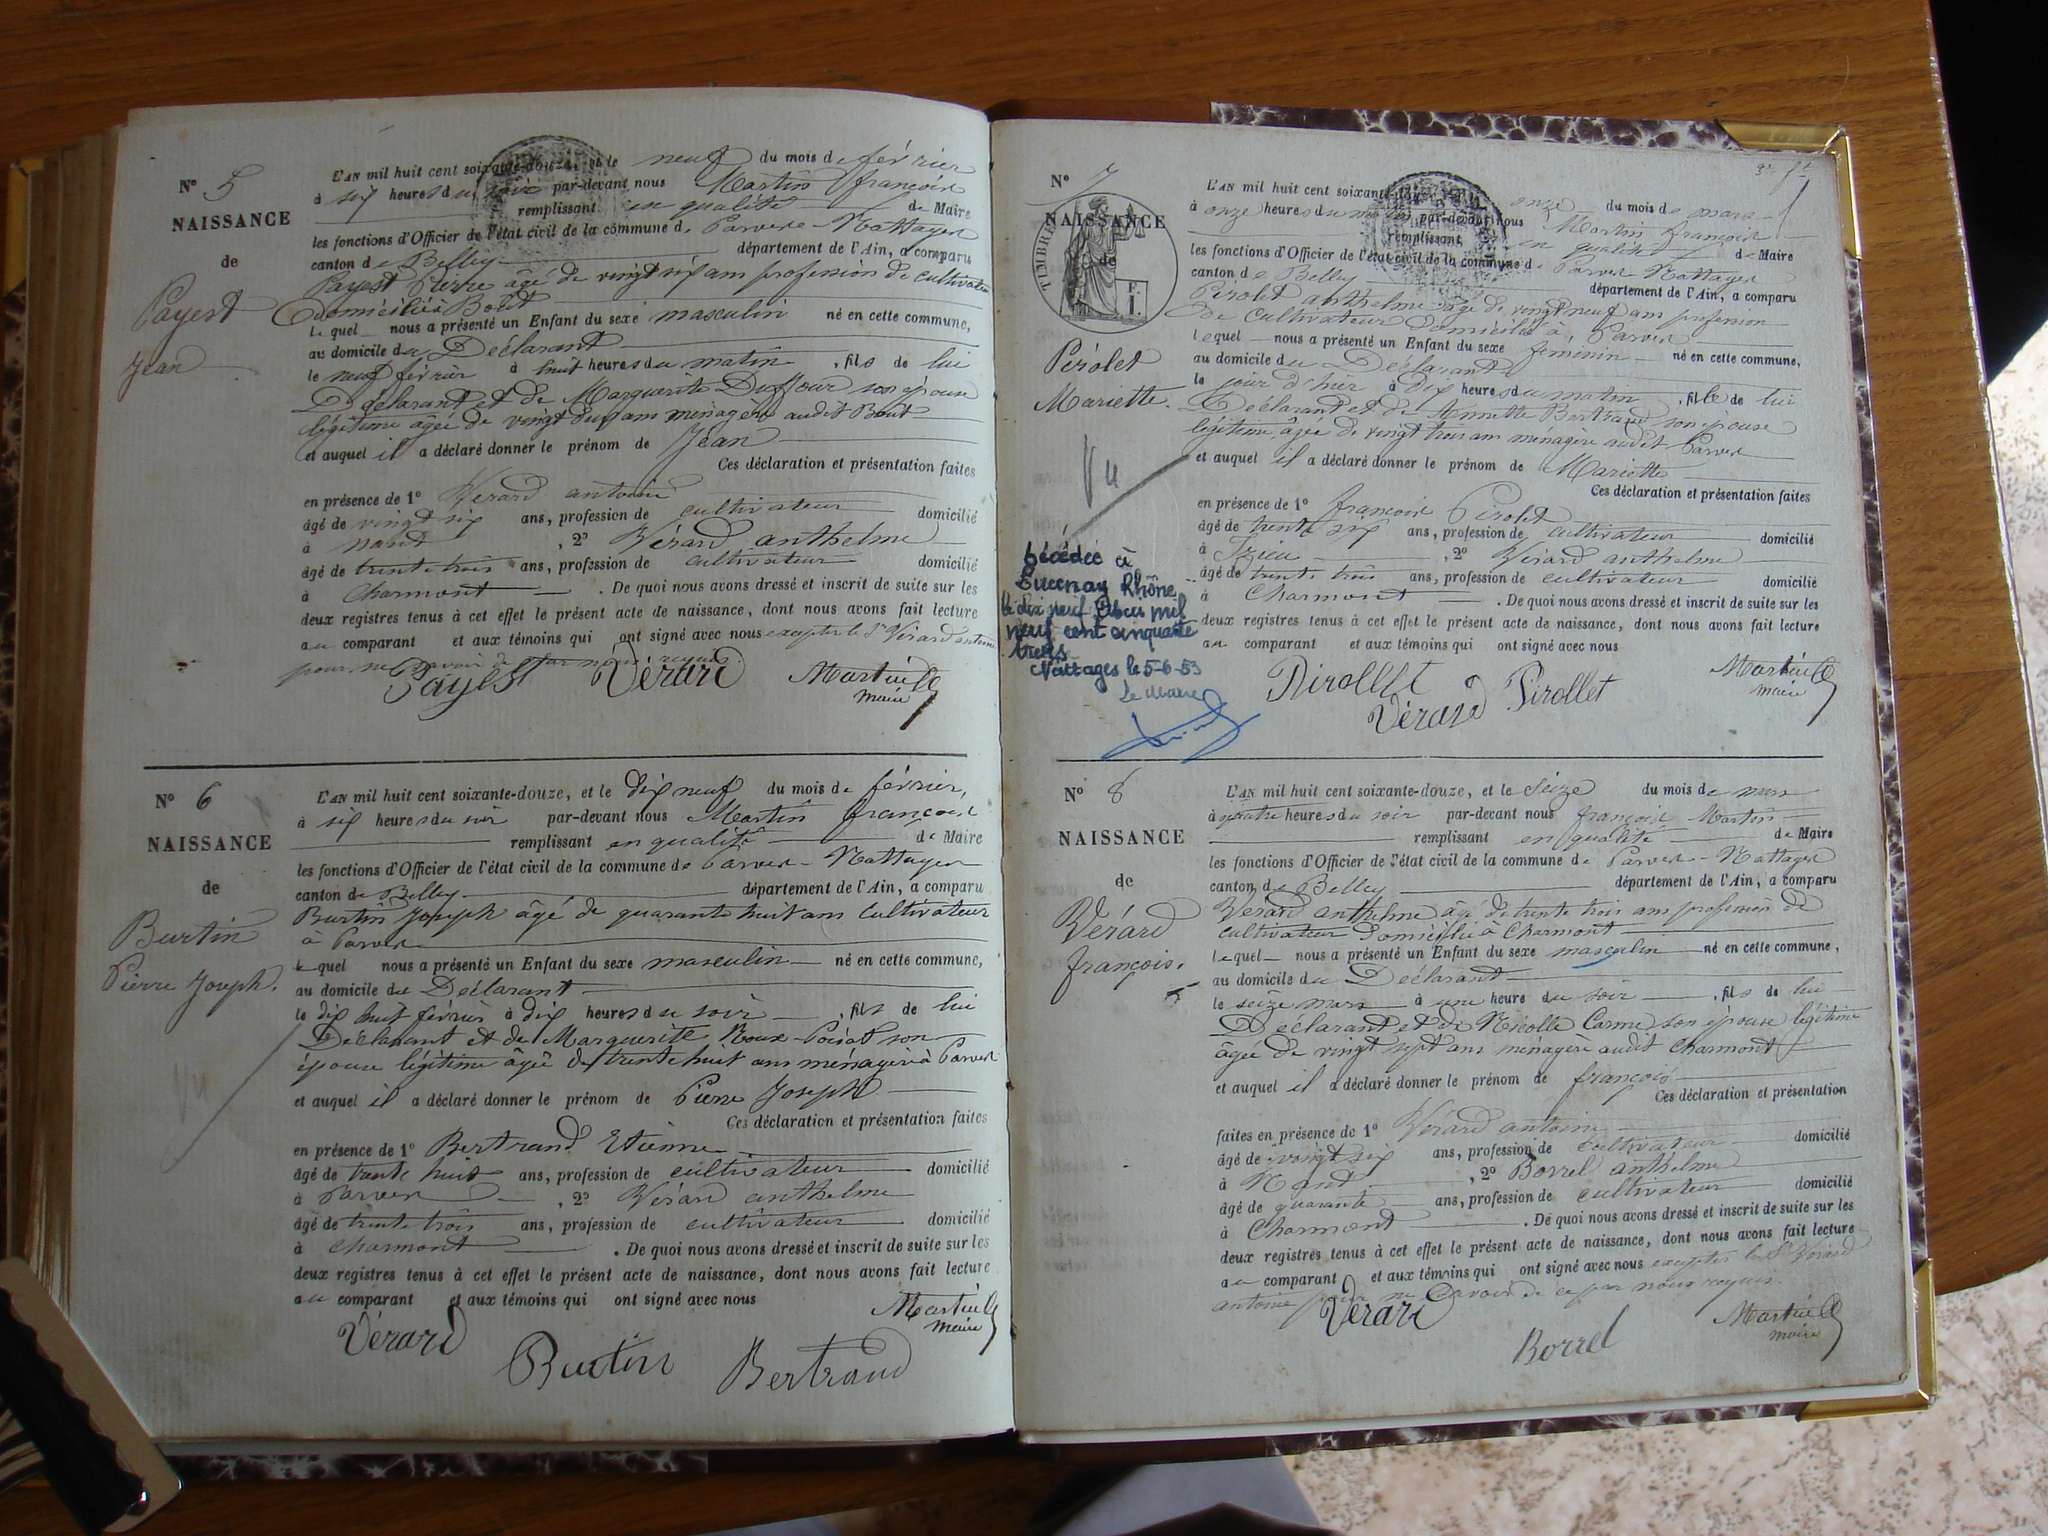 N° 5
NAISSANCE
de
Payest
Jean
L'AN mil huit cent soixante-douze, et le neuf du mois de février
à six heures du soir par-devant nous Martin françois
remplissant en qualité de Maire
les fonctions d'Officier de l'état civil de la commune de Parves-Nattages
canton de Belley département de l'Ain, a comparu
Payest Pierre âgé de vingt six ans profession de cultivateur
Domicilié à
le quel nous a présenté un Enfant du sexe masculin né en cette commune,
au domicile du Déclarant
le neuf février à huit heures du matin, fils de lui
Déclarant et de Marguerite Duffour son épouse
légitime âgée de vingt ans ménagère audit
et auquel il a déclaré donner le prénom de Jean
Ces déclaration et présentation faites
en présence de 1° Vérard antoine
âgé de vingt six ans, profession de cultivateur domicilié
à Nant, 2° Vérard anthelme
âgé de trente trois ans, profession de cultivateur domicilié
à Charmont. De quoi nous avons dressé et inscrit de suite sur les
deux registres tenus à cet effet le présent acte de naissance, dont nous avons fait lecture
au comparant et aux témoins qui ont signé avec nous excepté le Sr Vérard antoine
pour ne savoir de ce par nous requis.
Payest Vérard Martin
maire
N° 6
NAISSANCE
de
Burtin
Pierre Joseph.
L'AN mil huit cent soixante-douze, et le dix neuf du mois de février,
à six heures du soir par-devant nous Martin françois
remplissant en qualité de Maire
les fonctions d'Officier de l'état civil de la commune de Parves-Nattages
canton de Belley département de l'Ain, a comparu
Burtin Joseph âgé de quarante huit ans cultivateur
à Parves
le quel nous a présenté un Enfant du sexe masculin né en cette commune,
au domicile du Déclarant
le dix huit février à dix heures du soir, fils de lui
Déclarant et de Marguerite Roux-Poizat son
épouse légitime âgée de trente huit ans ménagère à Parves
et auquel il a déclaré donner le prénom de Pierre Joseph
Vu
Ces déclaration et présentation faites
en présence de 1° Bertrand Etienne
âgé de trente huit ans, profession de cultivateur domicilié
à Parves, 2° Vérard anthelme
âgé de trente trois ans, profession de cultivateur domicilié
à Charmont. De quoi nous avons dressé et inscrit de suite sur les
deux registres tenus à cet effet le présent acte de naissance, dont nous avons fait lecture
au comparant et aux témoins qui ont signé avec nous
Martin
maire
Vérard Burtin Bertrand
N° 7
NAISSANCE
de
TIMBRE
Pérolet
Mariette.
L'AN mil huit cent soixante-douze, et le onze du mois de mars
à onze heures du matin par-devant nous Martin françois
remplissant en qualité de Maire
les fonctions d'Officier de l'état civil de la commune de Parves Nattages
canton de Belley département de l'Ain, a comparu
Pirolet anthelme âgé de vingt neuf ans profession
de cultivateur Domicilié à Parves
lequel nous a présenté un Enfant du sexe féminin né en cette commune,
au domicile du Déclarant
le jour d'hier à dix heures du matin, fille de lui
Déclarant et de Annette Bertrand son épouse
légitime âgée de vingt trois ans ménagère audit Parves
et auquel il a déclaré donner le prénom de Mariette
Vu
Ces déclaration et présentation faites
en présence de 1° françois Pirolet
âgé de trente six ans, profession de cultivateur domicilié
à Izieu, 2° Vérard anthelme
âgé de trente trois ans, profession de cultivateur domicilié
à Charmont. De quoi nous avons dressé et inscrit de suite sur les
deux registres tenus à cet effet le présent acte de naissance, dont nous avons fait lecture
au comparant et aux témoins qui ont signé avec nous
Décédée à
Lucenay Rhône
le dix neuf mil
neuf cent cinquante
trois
Nattages le 5-6-53
Le Maire
Pirollet Vérard Pirollet Martin
maire
N° 8
NAISSANCE
de
Vérard
françois.
L'AN mil huit cent soixante-douze, et le seize du mois de mars
à quatre heures du soir par-devant nous françois Martin
remplissant en qualité de Maire
les fonctions d'Officier de l'état civil de la commune de Parves-Nattages
canton de Belley département de l'Ain, a comparu
Vérard anthelme âgé de trente trois ans profession de
cultivateur Domicilié à Charmont
lequel nous a présenté un Enfant du sexe masculin né en cette commune,
au domicile du Déclarant
le seize mars à une heure du soir, fils de lui
Déclarant et de Nicolle Carme son épouse légitime
âgée de vingt sept ans ménagère audit Charmont
et auquel il a déclaré donner le prénom de françois
Ces déclaration et présentation
faites en présence de 1° Vérard antoine
âgé de vingt six ans, profession de cultivateur domicilié
à Nant, 2° Borrel anthelme
âgé de quarante ans, profession de cultivateur domicilié
à Charmont. De quoi nous avons dressé et inscrit de suite sur les
deux registres tenus à cet effet le présent acte de naissance, dont nous avons fait lecture
au comparant et aux témoins qui ont signé avec nous excepté le Sr Vérard
antoine pour ne savoir de ce par nous requis.
Vérard Borrel Martin
maire